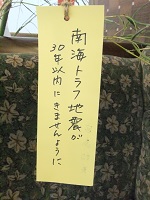 南海トラフ地震が
30年以内にきませんように